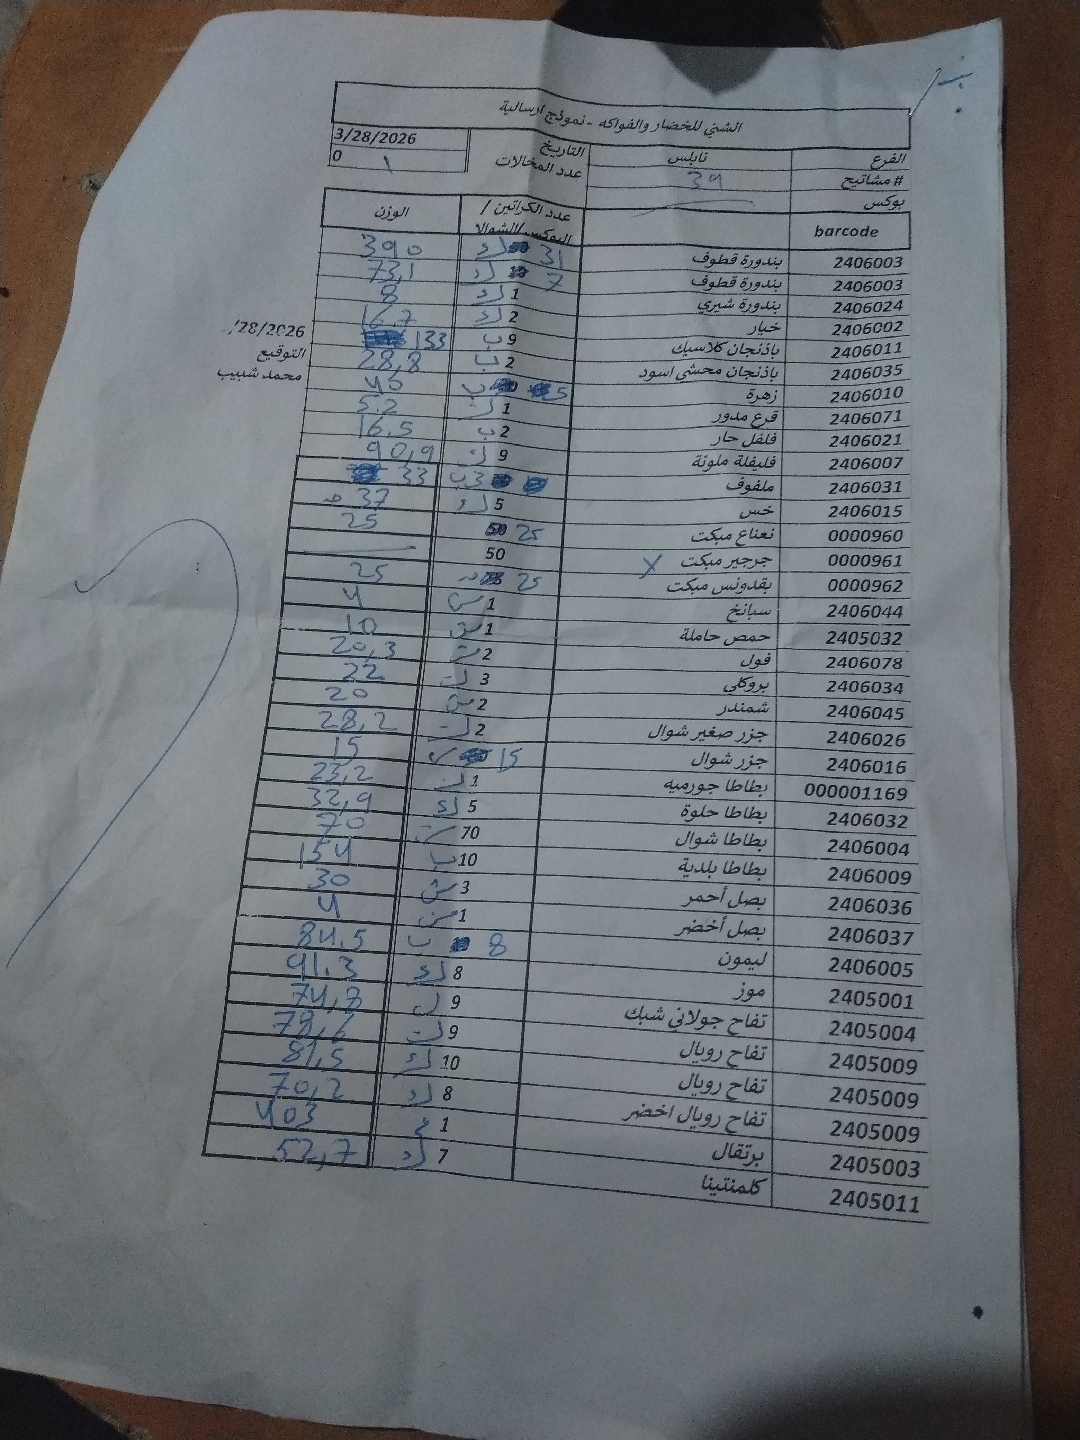 الشني للخضار والفواكه - نموذج ارسالية
الفرع نابلس التاريخ 3/28/2026
# مشاتيح 39 عدد المخالات 0 1
بوكس
barcode عدد الكراتين / البوكس/الشوالا الوزن
2406003 بندورة قطوف 31 ك 390
2406003 بندورة قطوف 7 ك 73,1
2406024 بندورة شيري 1 ك 8
2406002 خيار 2 ك 16.7
2406011 باذنجان كلاسيك 9 ب 133
2406035 باذنجان محشي اسود 2 ب 28,8
2406010 زهرة 5 ب 40
2406071 قرع مدور 1 5.2
2406021 فلفل حار 2 ب 16.5
2406007 فليفلة ملونة 9 90,9
2406031 ملفوف 3 ب 33
2406015 خس 5 ك 37
0000960 نعناع مبكت 50 25 25
0000961 جرجير مبكت X 50
0000962 بقدونس مبكت 25 25
2406044 سبانخ 1 4
2405032 حمص حاملة 1 ش 10
2406078 فول 2 20,3
2406034 بروكلي 3 22
2406045 شمندر 2 ش 20
2406026 جزر صغير شوال 2 28,2
2406016 جزر شوال 15 15
000001169 بطاطا جورميه 1 23,2
2406032 بطاطا حلوة 5 ك 32,9
2406004 بطاطا شوال 70 70
2406009 بطاطا بلدية 10 ب 154
2406036 بصل أحمر 3 ش 30
2406037 بصل أخضر 1 4
2406005 ليمون 8 ب 84.5
2405001 موز 8 ك 91.3
2405004 تفاح جولاني شبك 9 74,8
2405009 تفاح رويال 9
2405009 تفاح رويال 10 ك 81,5
2405009 تفاح رويال اخضر 8 ك 70,2
2405003 برتقال 1 403
2405011 كلمنتينا 7 ك 52,7
/28/2026
التوقيع
محمد شبيب